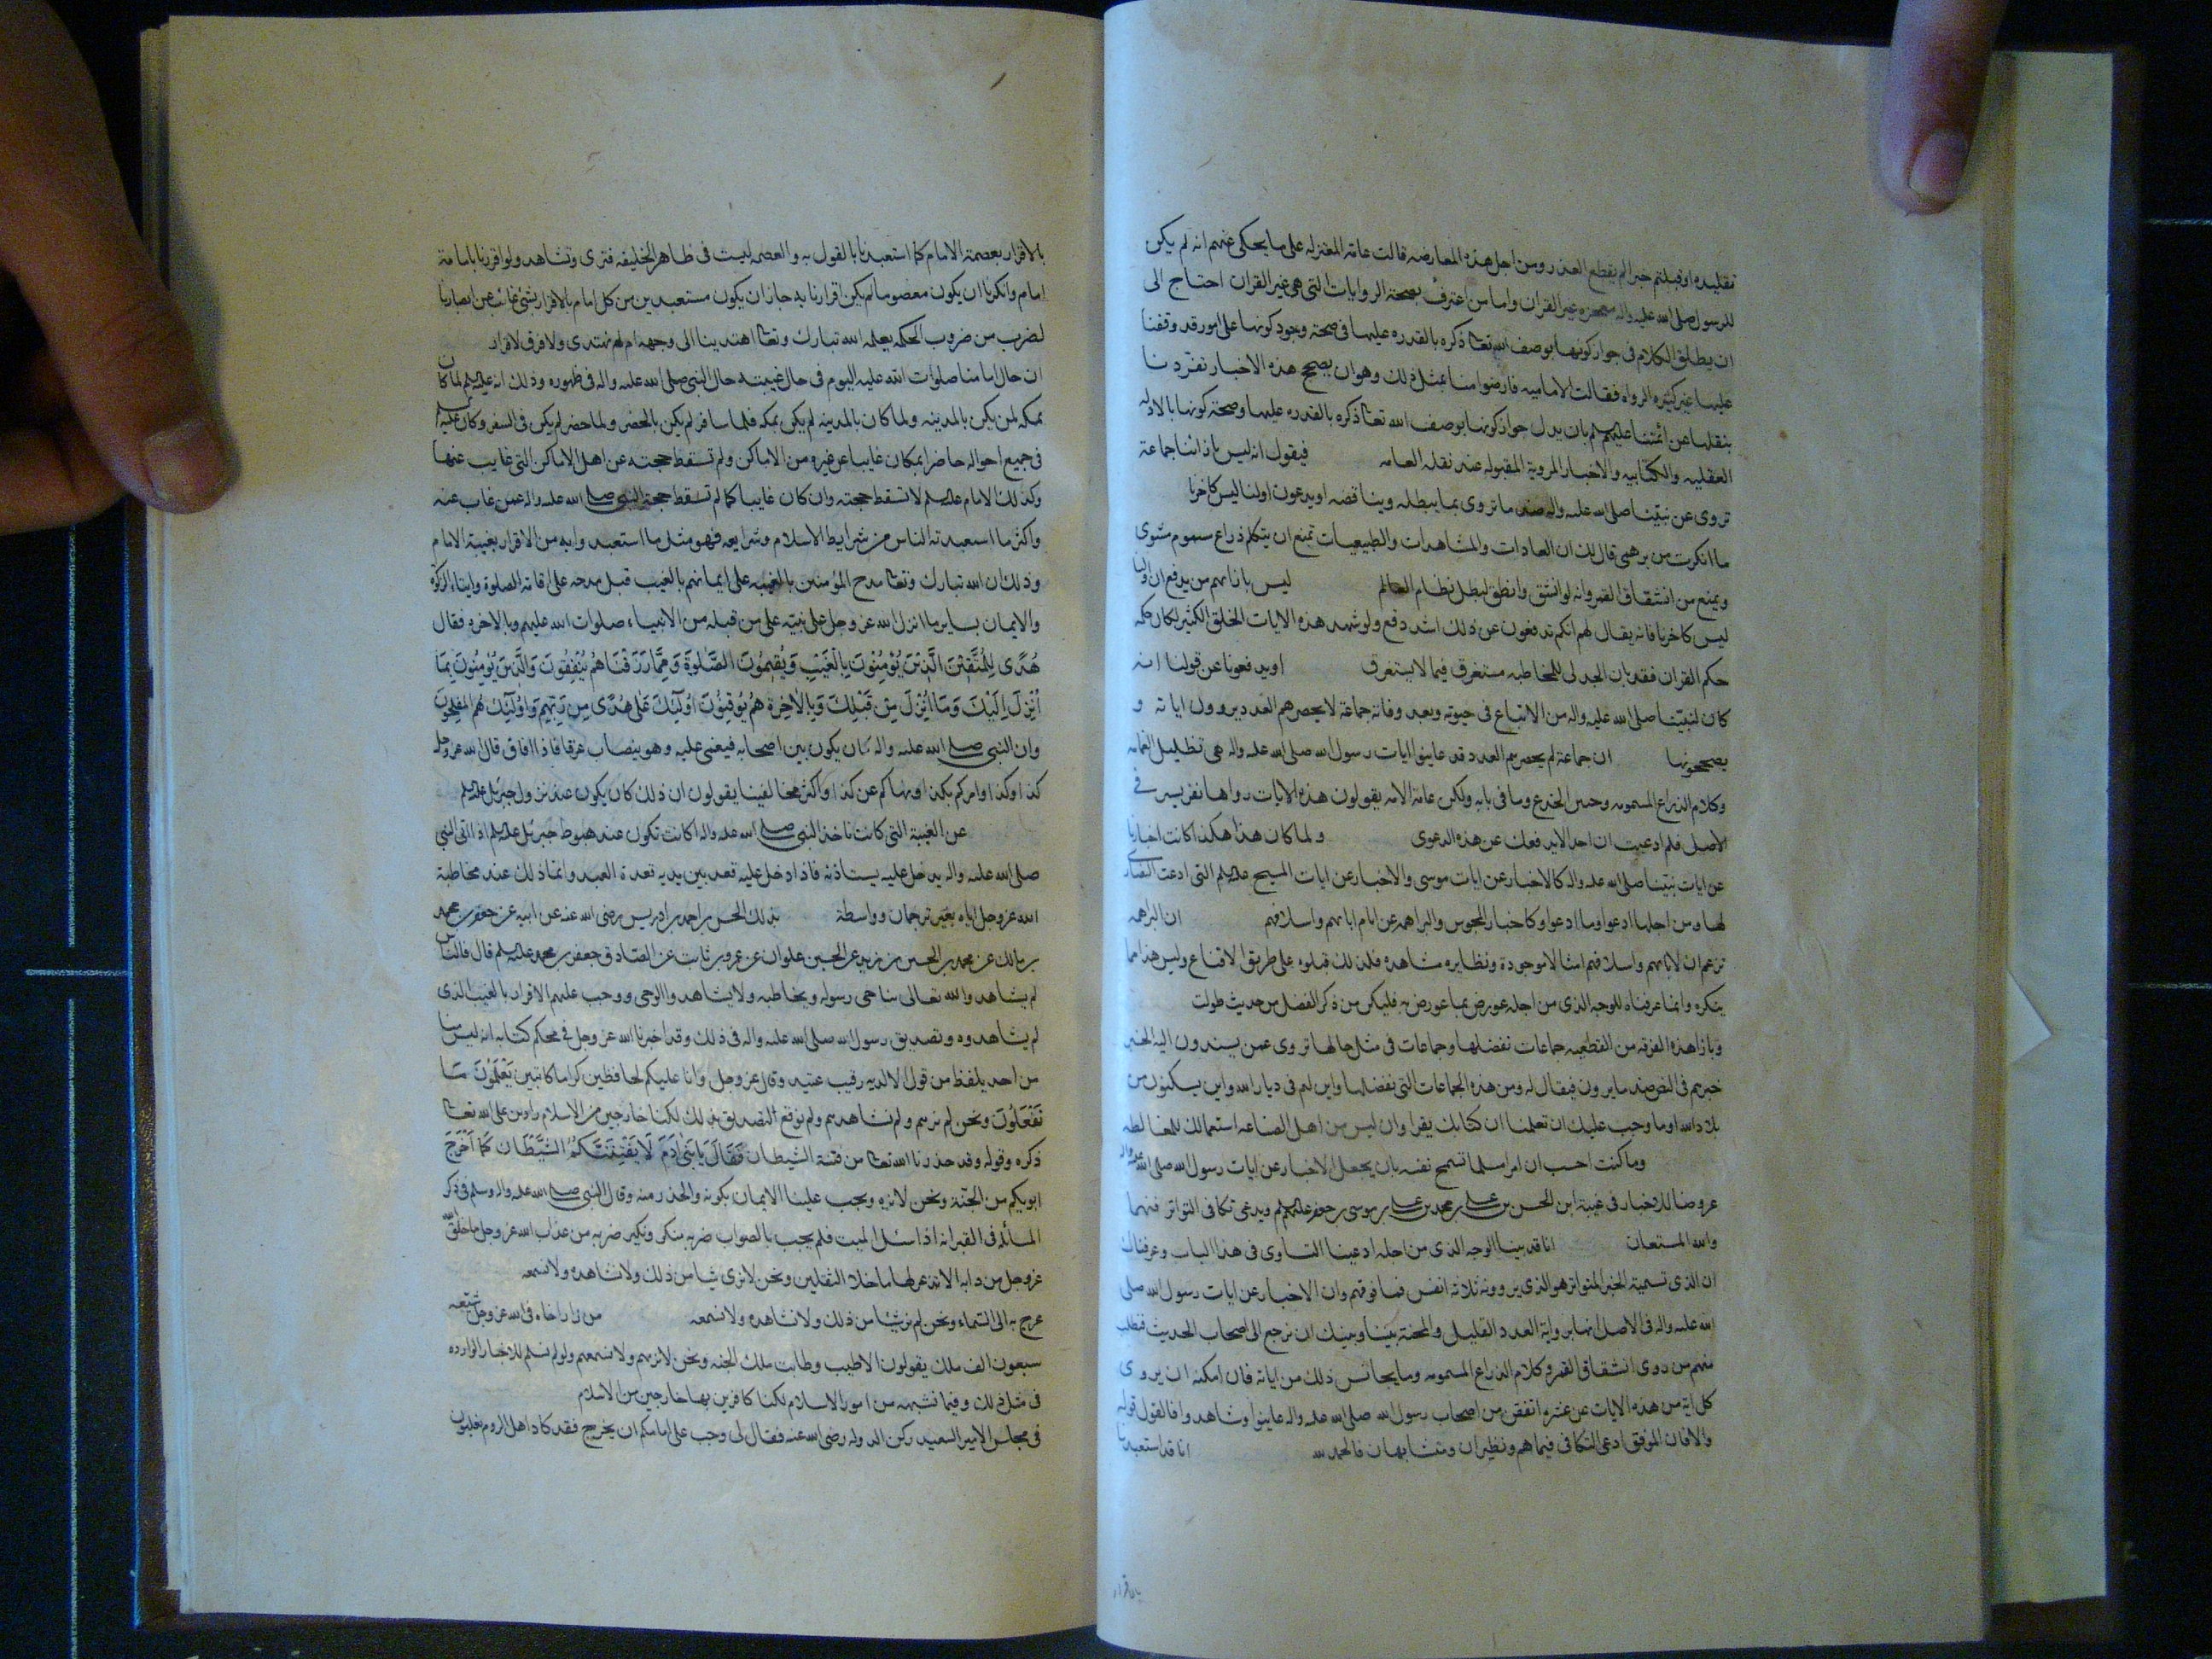 تقليده او قبلتم خبرا لم يقطع العذر ومن اجل هذه المعارضه قالت عامه المعتزله على ما يحكى عنهم انه لم يكن
للرسول صلى الله عليه واله معجزه غير القران واما من اعترف بصحة الروايات التى هى غير القران احتاج الى
ان يطلق الكلام فى جواز كونها بوصف الله تعا ذكره بالقدره عليها فى صحة وجود كونها على امور قد وقفنا
عليها غير كثيره الرواه فقالت الاماميه فارضوا منا بمثل ذلك وهو ان يصحح هذه الاخبار تفردنا
بنقلها عن ائمتنا عليهم السلم بان يدل جواز كونها بوصف الله تعا ذكره بالقدره عليها وصحة كونها بالادله
العقليه والكتابيه والاخبار المرويه المقبوله عند نقله العامه فيقول انه ليس بازائنا جماعة
تروى عن نبينا صلى الله عليه واله ضد ما تروى بما يبطله ويناقضه او يدعون اولنا ليس كاخرنا
ما انكرت من برهمى قال لك ان العادات والمشاهدات والطبيعيات تمنع ان يتكلم ذراع مسموم مشوى
ويمنع من انشقاق القمر وانه لو انشق وانفلق لبطل نظام العالم ليس بازائهم من يدفع ان اولنا
ليس كاخرنا فانه يقال لهم انكم تدفعون عن ذلك اشد دفع ولو شهد هذه الايات الخلق الكثير لكان حكمه
حكم القران فقد بان الجدلى للمخاطبه مستغرق فيما لا يستغرق او يدفعونا عن قولنا انه
كان لنبينا صلى الله عليه واله من الاتباع فى حيوته وبعد وفاته جماعة لا يحصرهم العدد يروون اياته و
يصححونها ان جماعة لم يحصرهم العدد قد عاينوا ايات رسول الله صلى الله عليه واله هى تظليل الغمامه
وكلام الذراع المسمومه وحنين الجذع وما فى بابه ولكن عامة الامه يقولون هذه الايات رواها نفر يسير فى
الاصل فلم ادعيت ان احدا لا يدفعك عن هذه الدعوى ولما كان هذا هكذا كانت اخبارنا
عن ايات نبينا صلى الله عليه واله كالاخبار عن ايات موسى والاخبار عن ايات المسيح عليه السلم التى ادعت النصارى
لها ومن اجلها ادعوا وما ادعوا وكاخبار المجوس والبراهمه عن ايام ابائهم واسلافهم ان البراهمه
تزعم ان لابائهم واسلافهم امثالا موجودة ونظايره مشاهده فلذلك قبلوه على طريق الاقناع وليس هذا مما
ينكره وانما عرفناه للوجه الذى من اجله عورض بما عورض به فليكن من ذكر الفصل من حديث طولت
وبازا هذه الفرقه من القطعيه جماعات تفضلها وجماعات فى مثل حالها تروى عمن يسندون اليه الخبر
خبرهم فى النص ضد ما يروون فيقال له ومن هذه الجماعات التى تفضلها واين لهم فى ديار الله واين يسكنون من
بلاد الله اوما وجب عليك ان تعلمنا ان كتابك يقرا وان ليس من اهل الصناعه استعمالك للمغالطه
وما كنت احسب ان امرا مسلما تسمح نفسه بان يجعل الاخبار عن ايات رسول الله صلى الله عليه واله
عروضا للاخبار فى غيبة ابن الحسن بن على بن محمد بن على بن موسى بن جعفر عليهم السلم ويدعى تكافى التواتر فيهما
والله المستعان انا قد بينا الوجه الذى من اجله ادعينا التساوى فى هذا الباب وعرفناك
ان الذى نسميه الخبر المتواتر هو الذى يروونه ثلاثه انفس فما فوقهم وان الاخبار عن ايات رسول الله صلى
الله عليه واله فى الاصل انها برواية العدد القليل والمحنة بيننا وبينك ان نرجع الى اصحاب الحديث فنطلب
منهم من روى انشقاق القمر وكلام الذراع المسمومه وما يجانس ذلك من اياته فان امكنه ان يروى
كل اية من هذه الايات عن عشره انفس من اصحاب رسول الله صلى الله عليه واله عاينوا وشاهدوا فالقول قوله
والا فان الموفق ادعى التكافى فيما هم ونظيران ومتشابهان فالحمد لله انا قد استعبدنا
بالاقرار
بالاقرار بعصمة الامام كما استعبدنا بالقول به والعصمه ليست فى ظاهر الخليقه فترى وتشاهد ولو اقررنا بامامة
امام وانكرنا ان يكون معصوما لم يكن اقرارنا به جاز ان يكون مستعبدين من كل امام بالاقرار بشئ غائب عن ابصارنا
لضرب من ضروب الحكمه يعلمه الله تبارك وتعا اهتدينا الى وجهه ام لم نهتدى ولا فرق لاقرار
ان حال امامنا صلوات الله عليه اليوم فى حال غيبته حال النبى صلى الله عليه واله فى ظهوره وذلك انه عليه السلم لما كان
بمكه لم يكن بالمدينه ولما كان بالمدينه لم يكن بمكه فلما سافر لم يكن بالحضر ولما حضر لم يكن فى السفر وكان عليه السلم
فى جميع احواله حاضرا بمكان غايبا عن غيره من الاماكن ولم تسقط حجته عن اهل الاماكن التى غايب عنها
وكذلك الامام عليه السلم لا تسقط حجته وان كان غايبا كما لم تسقط حجة النبى صلى الله عليه واله عمن غاب عنه
واكثر ما استعبد ته الناس من شرايط الاسلام وشرايعه فهو مثل ما استعبدوا به من الاقرار بغيبة الامام
وذلك ان الله تبارك وتعا مدح المؤمنين بالغيبه على ايمانهم بالغيب قبل مدحه على اقامة الصلوة وايتاء الزكوة
والايمان بساير ما انزل الله عز وجل على نبيه على من قبله من الانبياء صلوات الله عليهم وبالاخره فقال
هُدًى لِلْمُتَّقِينَ الَّذِينَ يُؤْمِنُونَ بِالْغَيْبِ وَيُقِيمُونَ الصَّلٰوةَ وَمِمَّا رَزَقْنَاهُمْ يُنْفِقُونَ وَالَّذِينَ يُؤْمِنُونَ بِمَا
اُنْزِلَ اِلَيْكَ وَمَا اُنْزِلَ مِنْ قَبْلِكَ وَبِالْاٰخِرَةِ هُمْ يُوقِنُونَ اُولٰٓئِكَ عَلٰى هُدًى مِنْ رَبِّهِمْ وَاُولٰٓئِكَ هُمُ الْمُفْلِحُونَ
وان النبى صلى الله عليه واله كان يكون بين اصحابه فيغمى عليه وهو يتصاب عرقا فاذا افاق قال الله عز وجل
كذا وكذا وامركم بكذا ونهاكم عن كذا واكثر مخالفينا يقولون ان ذلك كان يكون عند نزول جبرئيل عليه السلم
عن الغيبة التى كانت تاخذ النبى صلى الله عليه واله اكانت تكون عند هبوط جبرئيل عليه السلم اذا اتى النبى
صلى الله عليه واله يدخل عليه يستاذنه فاذا دخل عليه قعد بين يديه قعدة العبد وانما ذلك عند مخاطبة
الله عز وجل اياه بغير ترجمان وواسطة بذلك الحسن بن احمد بن ادريس رضى الله عنه عن ابيه عن جعفر بن محمد
بن مالك عن محمد بن الحسين بن زيد عن الحسين علوان عن عمرو بن ثابت عن الصادق جعفر بن محمد عليه السلم قال فالناس
لم يشاهد والله تعالى يناجى رسوله ويخاطبه ولا يشاهدوا الوحى ووجب عليهم الاقرار بالغيب الذى
لم يشاهدوه وتصديق رسول الله صلى الله عليه واله فى ذلك وقد اخبرنا الله عز وجل فى محكم كتابه انه ليس منا
من احد يلفظ من قول الا لديه رقيب عتيد وقال عز وجل وانا عليكم لحافظين كراما كاتبين يَعْلَمُونَ مَا
تَفْعَلُونَ ونحن لم نرهم ولم نشاهدهم ولم نوقع التصديق بذلك لكنا خارجين من الاسلام رادين على الله تعا
ذكره وقوله وقد حذرنا الله تعا من فتنة الشيطان فَقَالَ يَا بَنِى اٰدَمَ لَا يَفْتِنَنَّكُمُ الشَّيْطَانُ كَمَا اَخْرَجَ
ابويكم من الجنة ونحن لا نريه ويجب علينا الايمان بكونه والحذر منه وقال النبى صلى الله عليه واله وسلم فى ذكر
المسائله فى القبر انه اذا سئل الميت فلم يجب بالصواب ضربه منكر ونكير ضربه من عذاب الله عز وجل ما خلق الله
عز وجل من دابه الا تذعر لها ما خلا الثقلين ونحن لا نرى شيا من ذلك ولا نشاهده ولا نسمعه
عرج به الى السماء ونحن لم نر شيا من ذلك ولا نشاهده ولا نسمعه من زار اخاه فى الله عز وجل شيعه
سبعون الف ملك يقولون الا طيب وطابت لك الجنه ونحن لا نريهم ولا نسمعهم ولو لم نسلم للاخبار الوارده
فى مثل ذلك وفيما نشبهه من امور الاسلام لكنا كافرين بها خارجين من الاسلام
فى مجلس الامير السعيد ركن الدوله رضى الله عنه فقال لى وجب على امامكم ان يخرج فقد كاد اهل الروم يغلبون